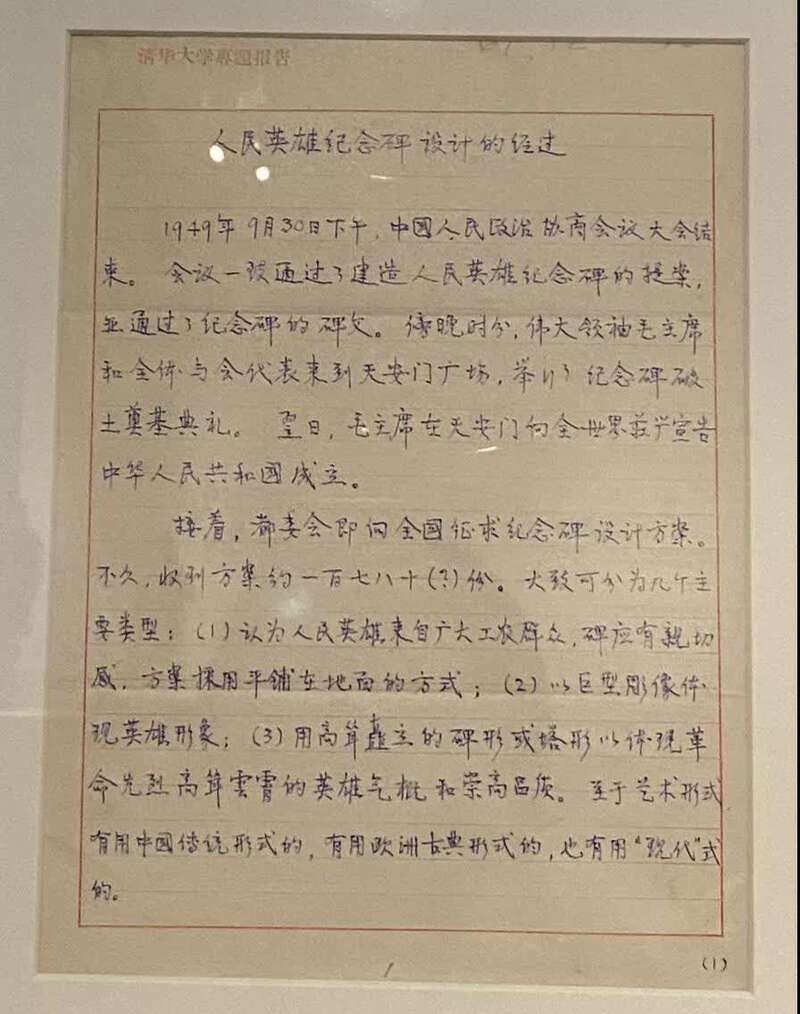 清华大学專題报告
人民英雄纪念碑设计的经过
1949年9月30日下午，中國人民政治协商会议大会结
束。会议一致通过了建造人民英雄纪念碑的提案，
並通过了纪念碑的碑文。傍晚时分，伟大领袖毛主席
和全体与会代表来到天安门广场，举行了纪念碑破
土奠基典礼。翌日，毛主席在天安门向全世界莊严宣告
中华人民共和國成立。
接着，都委会即向全国征求纪念碑设计方案。
不久，收到方案约一百七八十(?)份。大致可分为几个主
要类型：(1)认为人民英雄来自广大工农群众，碑应有親切
感，方案採用平铺在地面的方式；(2)以巨型彫像体
现英雄形象；(3)用高耸矗立的碑形或塔形以体现革
命先烈高耸雲霄的英雄气概和崇高品质。至于艺术形式
有用中國传统形式的，有用欧洲古典形式的，也有用“现代”式
的。
/
(1)